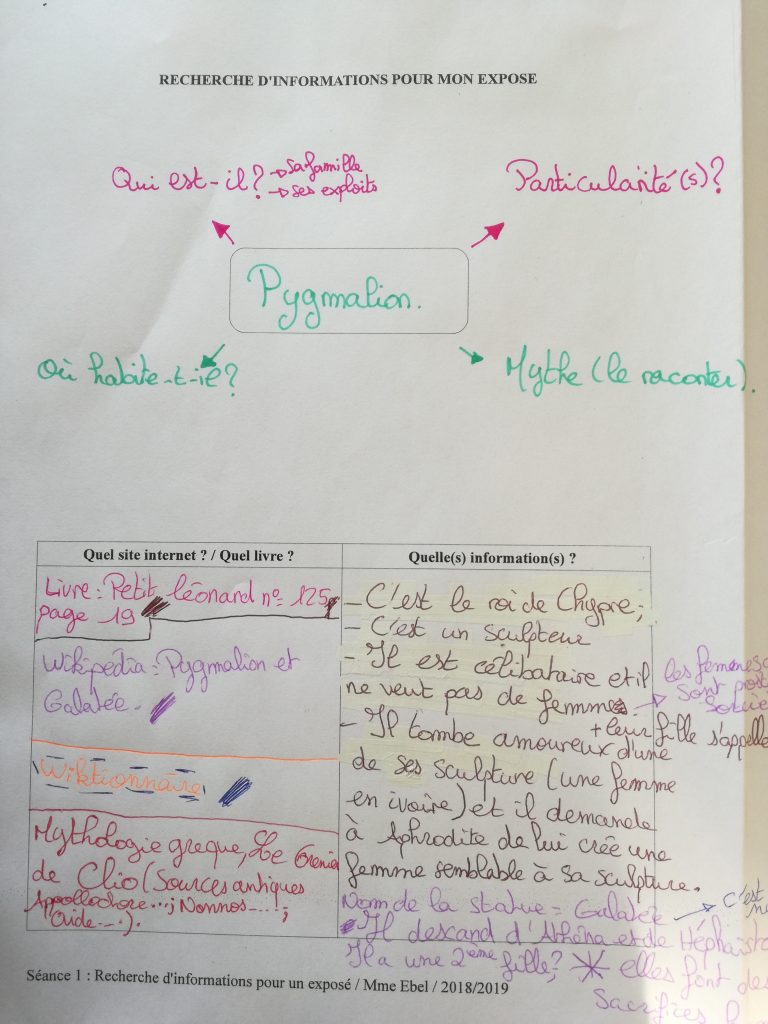 RECHERCHE D'INFORMATIONS POUR MON EXPOSE
Qui est-il? → sa famille
→ ses exploits
Particularité(s)?
Pygmalion.
Où habite-t-il?
Mythe (le raconter).
Quel site internet ? / Quel livre ?
Quelle(s) information(s) ?
Livre : Petit léonard n° 125,
page 19
Wikipédia : Pygmalion et
Galatée.
Wiktionnaire
Mythologie grecque, Le Grenier
de Clio (Sources antiques
Appollodore...; Nonnos...;
Ovide...).
- C'est le roi de Chypre;
- C'est un sculpteur
- Il est célibataire et il
ne veut pas de femmes. → les femmes
sont
- Il tombe amoureux d'une
+ leur fille s'appelle
de ses sculpture (une femme
en ivoire) et il demande
à Aphrodite de lui crée une
femme semblable à sa sculpture.
Nom de la statue = Galatée → C'est
Il descand d'Athéna et de
Il a une 2ème fille? * elles font des
Sacrifices
Séance 1 : Recherche d'informations pour un exposé / Mme Ebel / 2018/2019